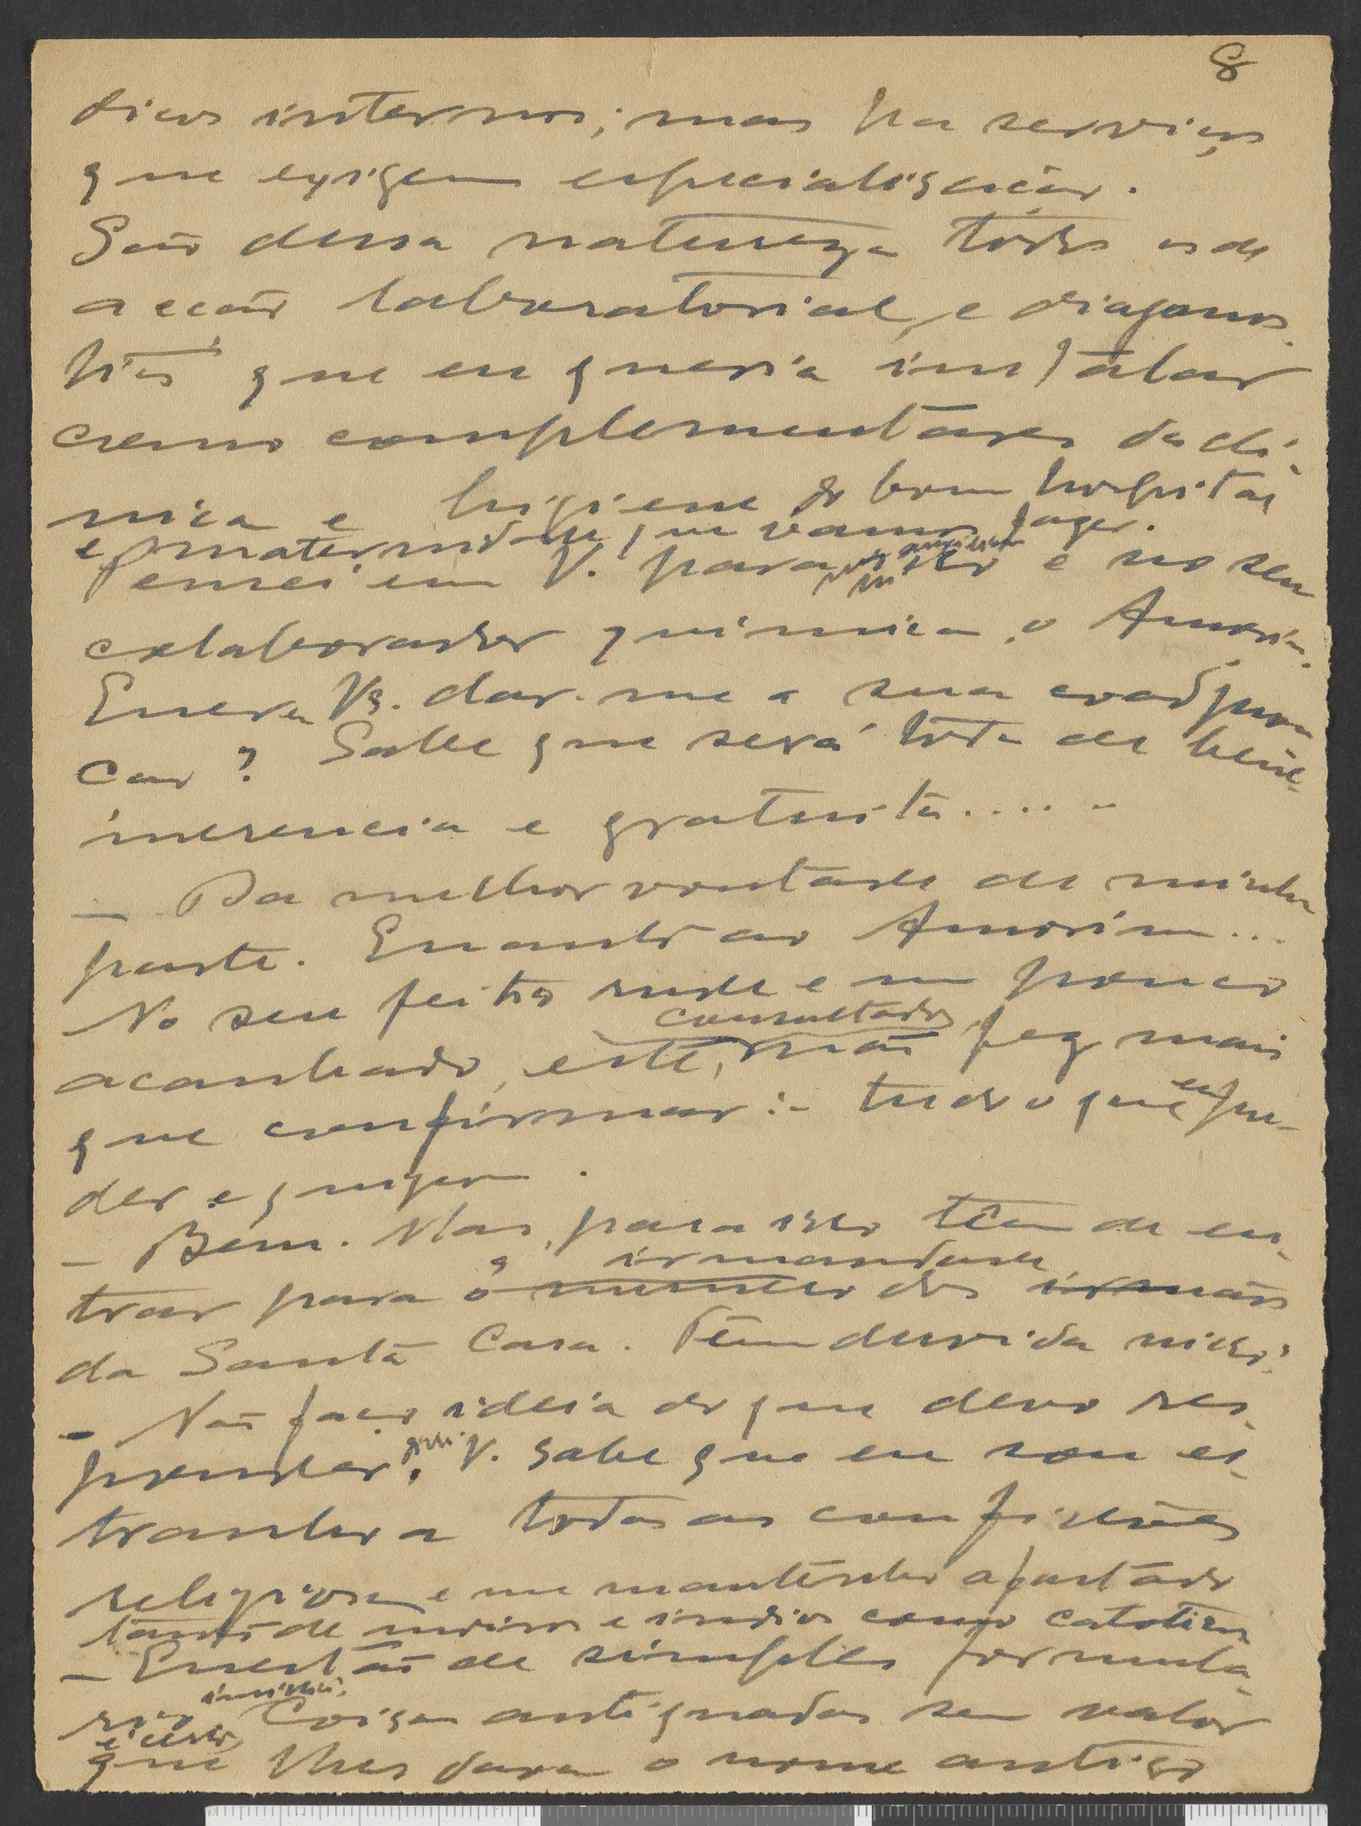 8
dicos internos; mas ha serviços
que exigem especialisação.
São dessa natureza todos os de
acção laboratorial, e diagnos-
ticos que eu queria instalar
como complementares da cli-
nica e higiene do bom hospital
e maternidade que vamos fazer.
Pensei em V. para isso e no seu
colaborador quimico, o Amorim.
Quer Vs. dar-me a sua coadjuva-
ção? Sabe que será toda de bene-
merencia e gratuita.....
— Da melhor vontade de minha
parte. Quanto ao Amorim...
No seu feitio rude e um pouco
consultado,
acanhado, este, não fez mais
que confirmar:- tudo o que eu pu-
der e quizer.
— Bem. Mas, para isso têm de en-
a irmandade
trar para o numero dos irmãos
da Santa Casa. Têm duvida nisso?
— Não faço ideia do que devo res-
ponder. V. sabe que eu sou es-
tranho a todas as confissões
religiosas e me mantenho afastado
tanto de moiros e indios como catolicos
— Questão de simples formula-
insistiu.
rio. Coisas antiquadas sem valor
é certo,
que lhes dava o nome antigo